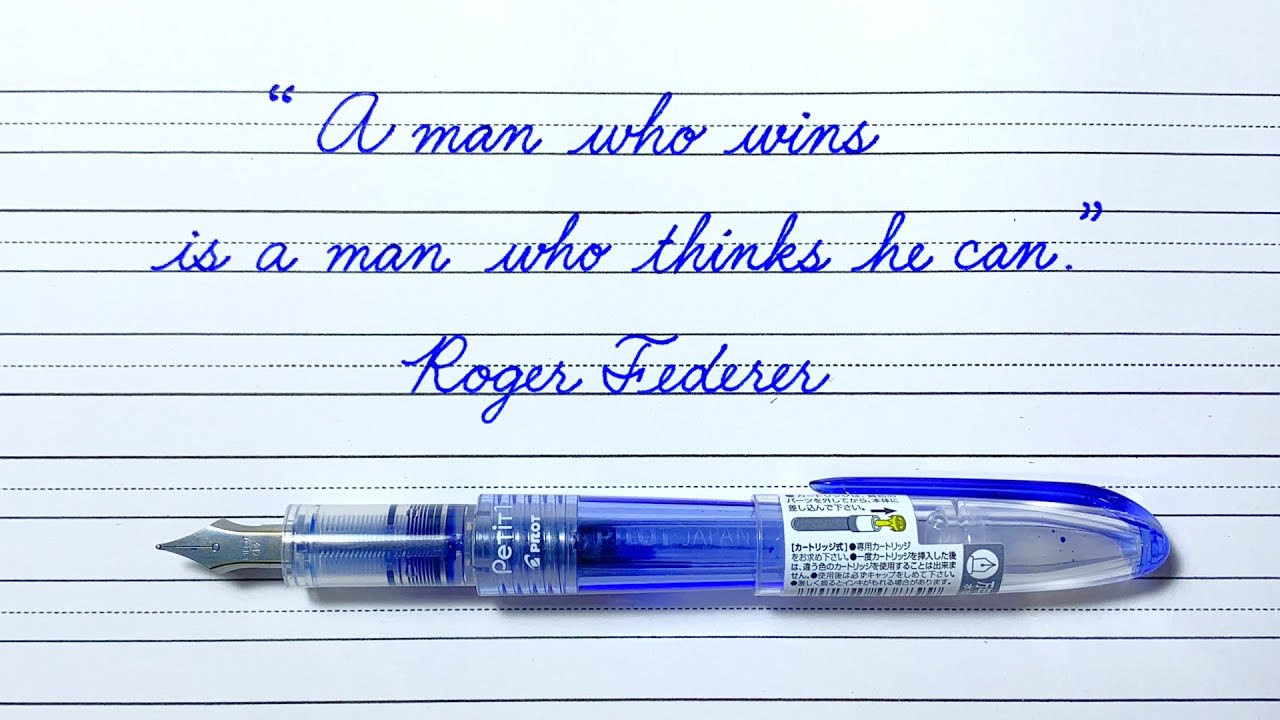 “ A man who wins
is a man who thinks he can.”
Roger Federer
Petit1
PILOT
JAPAN
パーツを外してから、本体に
差し込んで下さい。
【カートリッジ式】●専用カートリッジ
をお求め下さい。●一度カートリッジを挿入した後
は、違う色のカートリッジを使用することは出来ま
せん。●使用後は必ずキャップをしめて下さい。
●激しく振るとインキがもれる場合があります。